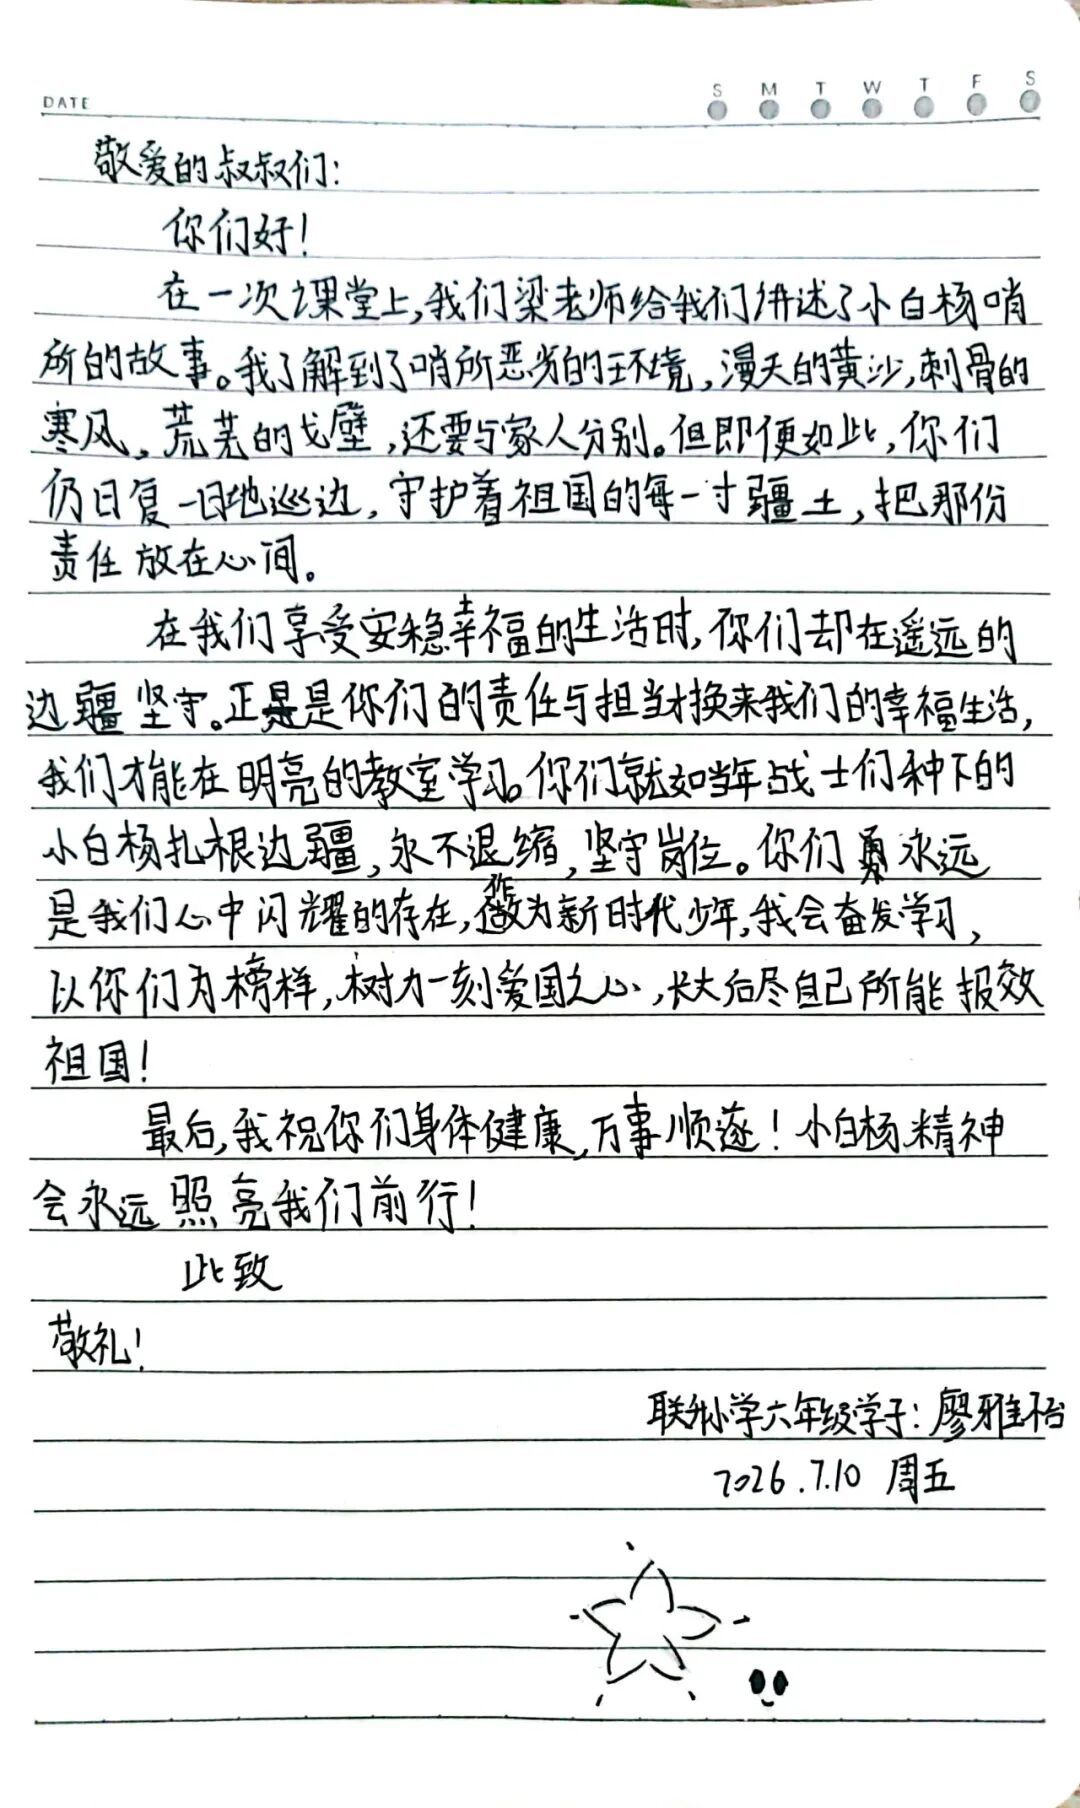 DATE
S M T W T F S
敬爱的叔叔们:
你们好!
在一次课堂上,我们梁老师给我们讲述了小白杨哨
所的故事。我了解到了哨所恶劣的环境,漫天的黄沙,刺骨的
寒风,荒芜的戈壁,还要与家人分别。但即便如此,你们
仍日复一日地巡边,守护着祖国的每一寸疆土,把那份
责任放在心间。
在我们享受安稳幸福的生活时,你们却在遥远的
边疆坚守。正是你们的责任与担当才换来我们的幸福生活,
我们才能在明亮的教室学习。你们就如当年战士们种下的
小白杨扎根边疆,永不退缩,坚守岗位。你们永远
是我们心中闪耀的存在,作为新时代少年,我会奋发学习,
以你们为榜样,树力一刻爱国之心,长大后尽自己所能报效
祖国!
最后,我祝你们身体健康,万事顺遂!小白杨精神
会永远照亮我们前行!
此致
敬礼!
联升小学六年级学子:廖雅怡
2026.7.10 周五